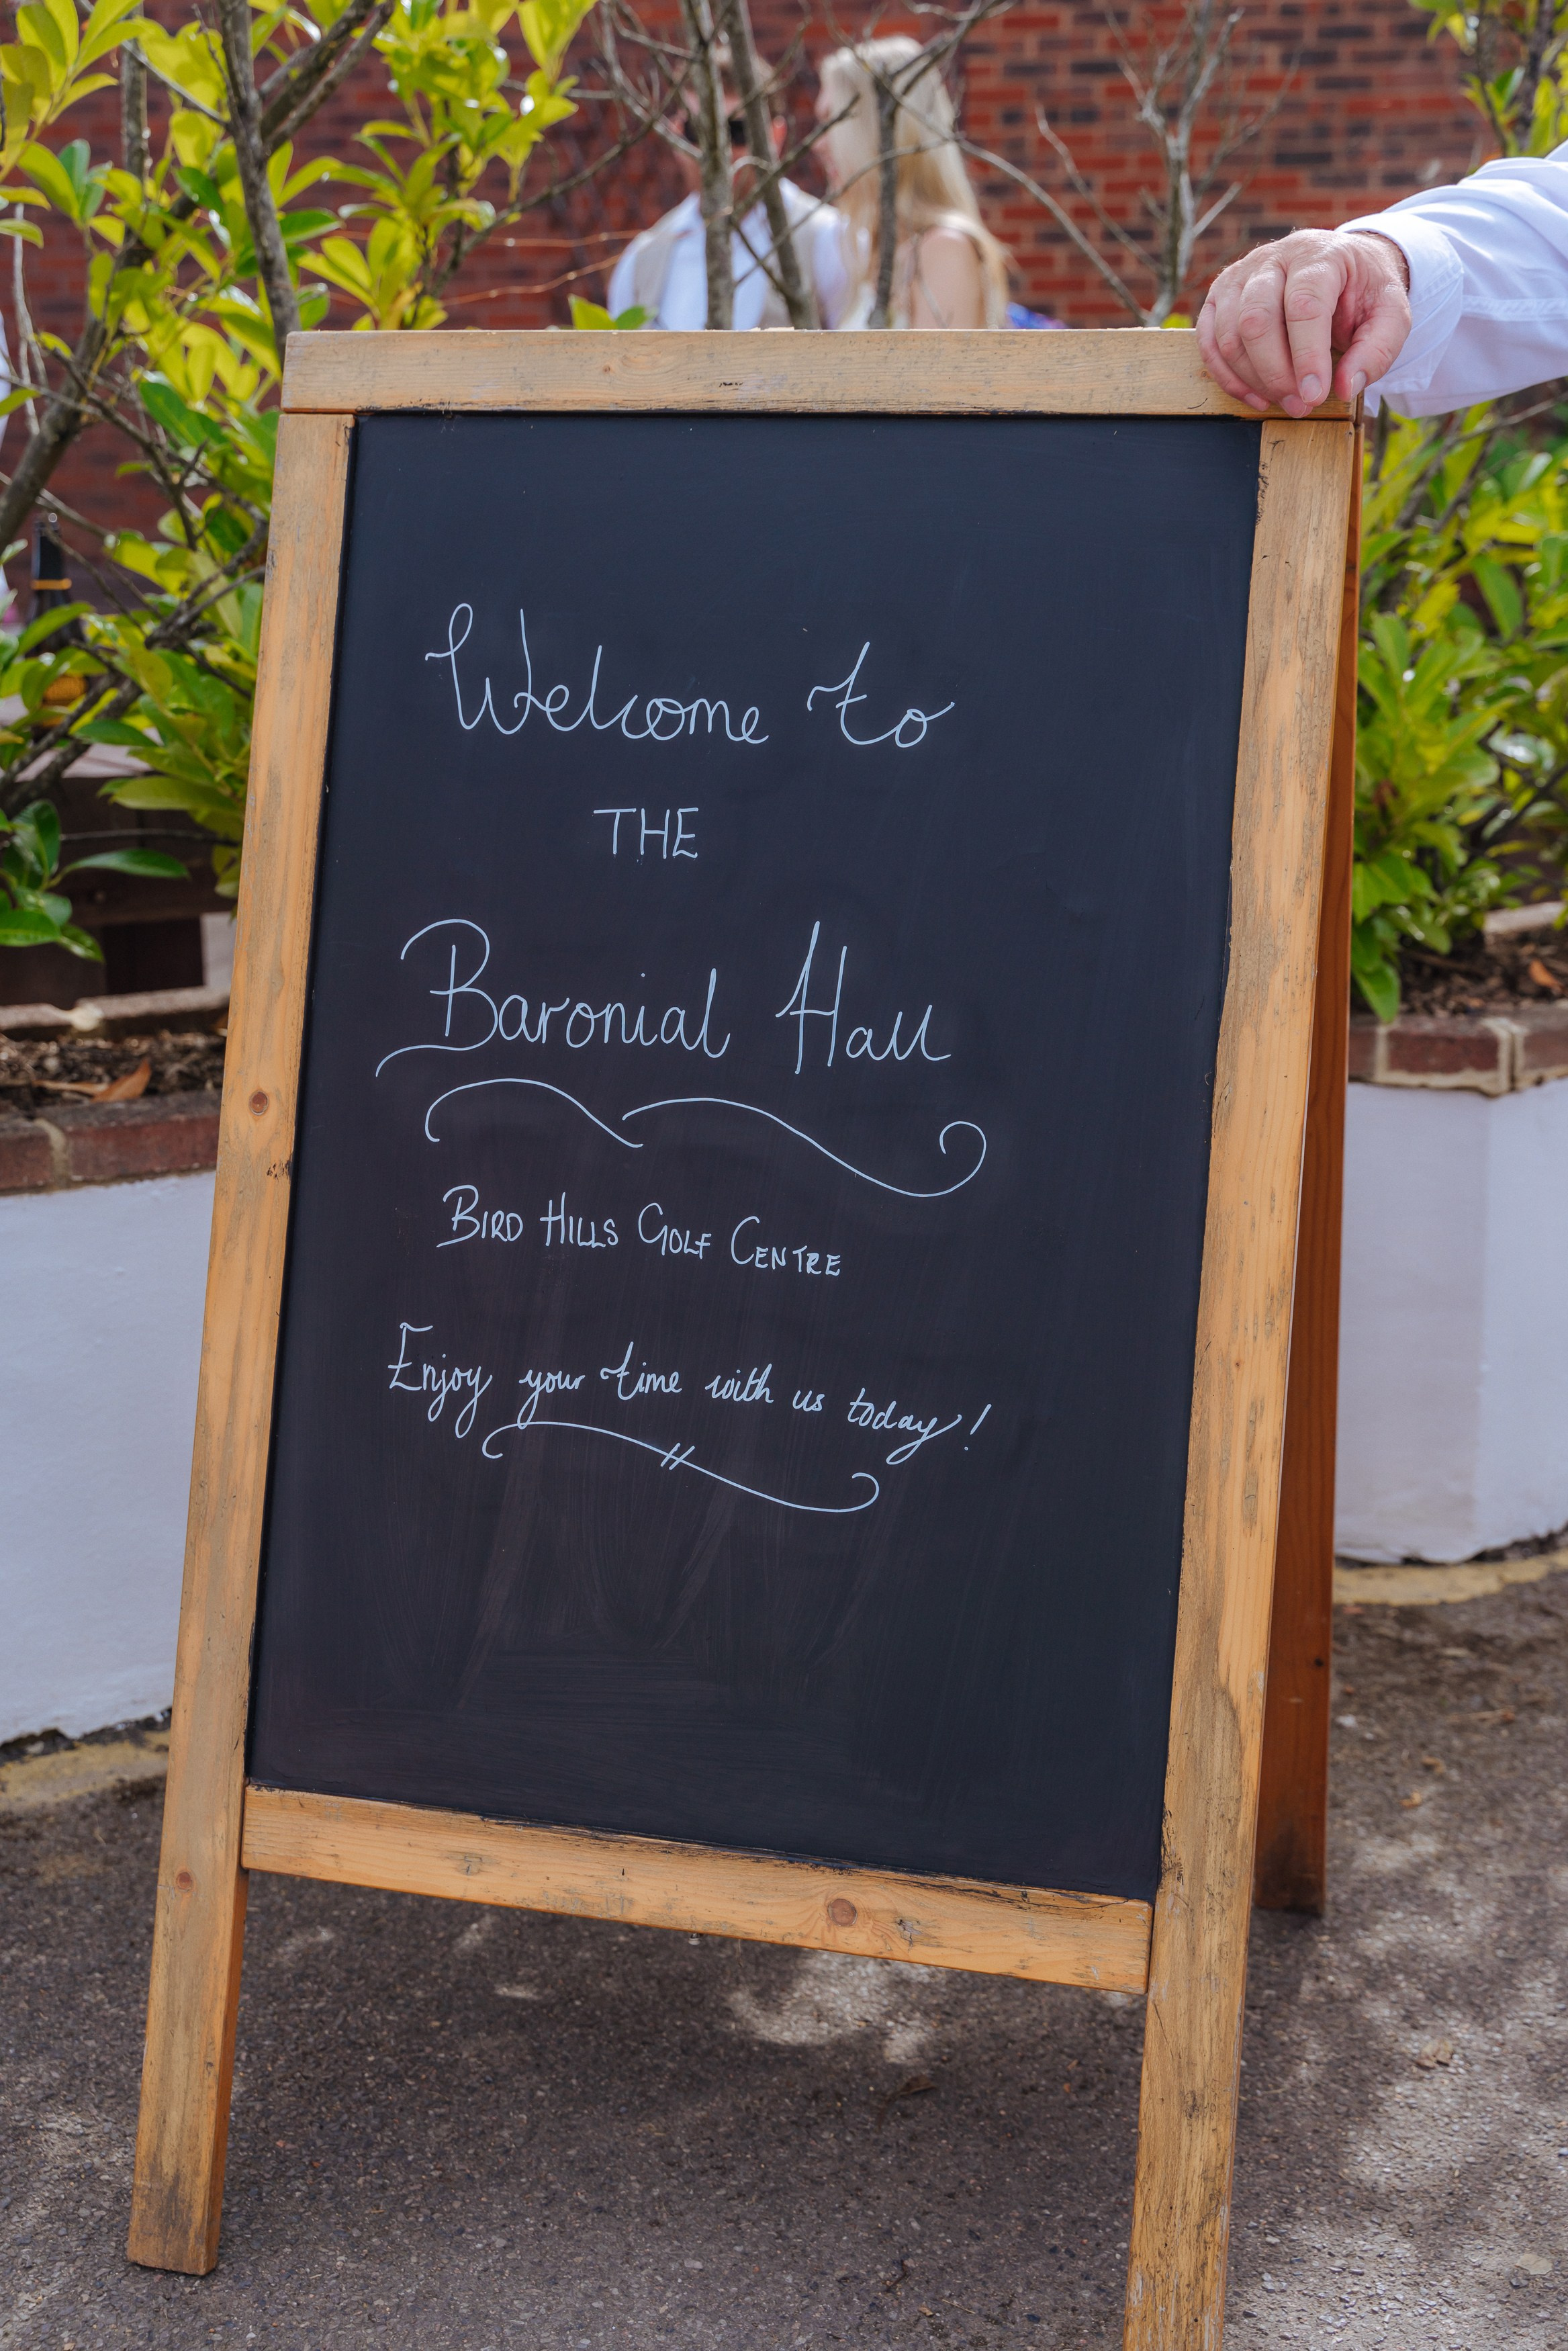 Welcome to
THE
Baronial Hall
BIRD HILLS GOLF CENTRE
Enjoy your time with us today!